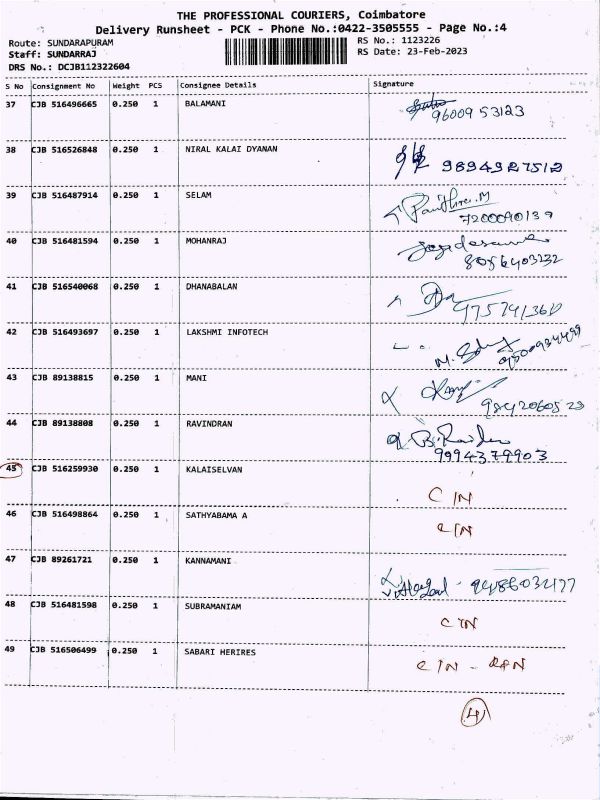 THE PROFESSIONAL COURIERS, Coimbatore
Delivery Runsheet - PCK - Phone No.:0422-3505555 - Page No.:4
Route: SUNDARAPURAM RS No.: 1123226
Staff: SUNDARRAJ RS Date: 23-Feb-2023
DRS No.: DCJB112322604
S No Consignment No Weight PCS Consignee Details Signature
37 CJB 516496665 0.250 1 BALAMANI
9600953123
38 CJB 516526848 0.250 1 NIRAL KALAI DYANAN
9894927512
39 CJB 516487914 0.250 1 SELAM
7200090139
40 CJB 516481594 0.250 1 MOHANRAJ
8056403232
41 CJB 516540068 0.250 1 DHANABALAN
42 CJB 516493697 0.250 1 LAKSHMI INFOTECH
43 CJB 89138815 0.250 1 MANI
9842060523
44 CJB 89138808 0.250 1 RAVINDRAN
9994379903
45 CJB 516259930 0.250 1 KALAISELVAN
CIN
46 CJB 516498864 0.250 1 SATHYABAMA A
CIN
47 CJB 89261721 0.250 1 KANNAMANI
48 CJB 516481598 0.250 1 SUBRAMANIAM
CIN
49 CJB 516506499 0.250 1 SABARI HERIRES
CIN -
4